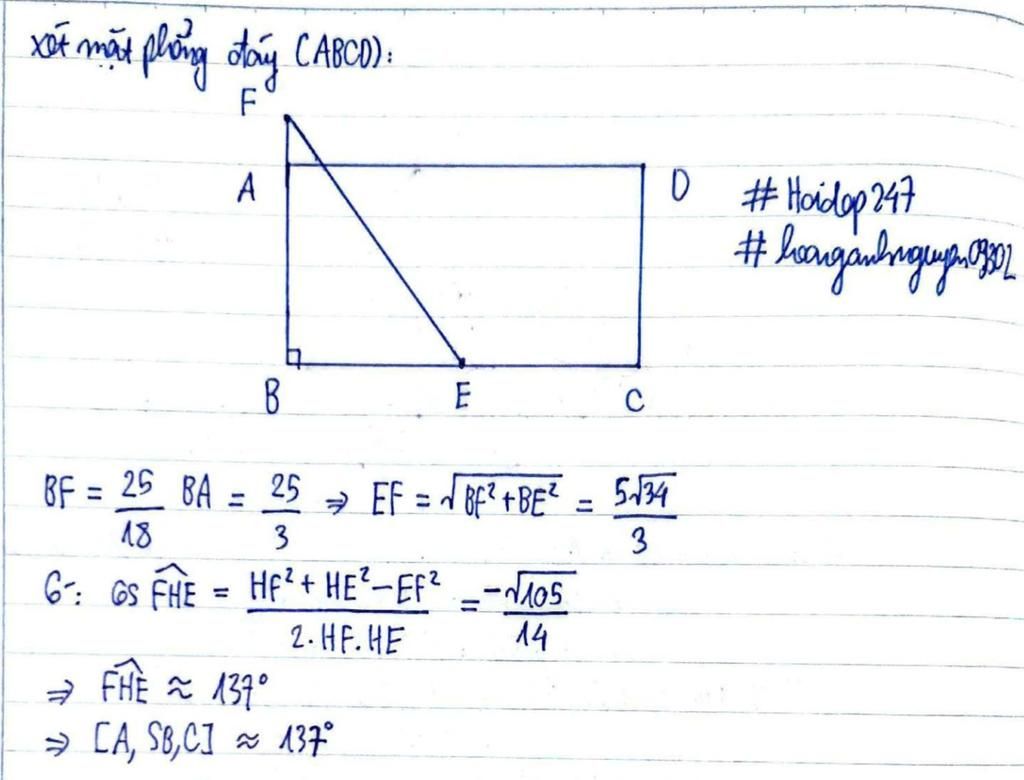 xét mặt phẳng đáy (ABCD):
F
A
D
#Hoidap247
#hoanganhnguyen09302
B
E
C
BF = 25/18 BA = 25/3 ⇒ EF = √(BF² + BE²) = 5√34/3
Có: cos FHE = (HF² + HE² - EF²)/(2.HF.HE) = -√105/14
⇒ FHE ≈ 137°
⇒ [A, SB, C] ≈ 137°